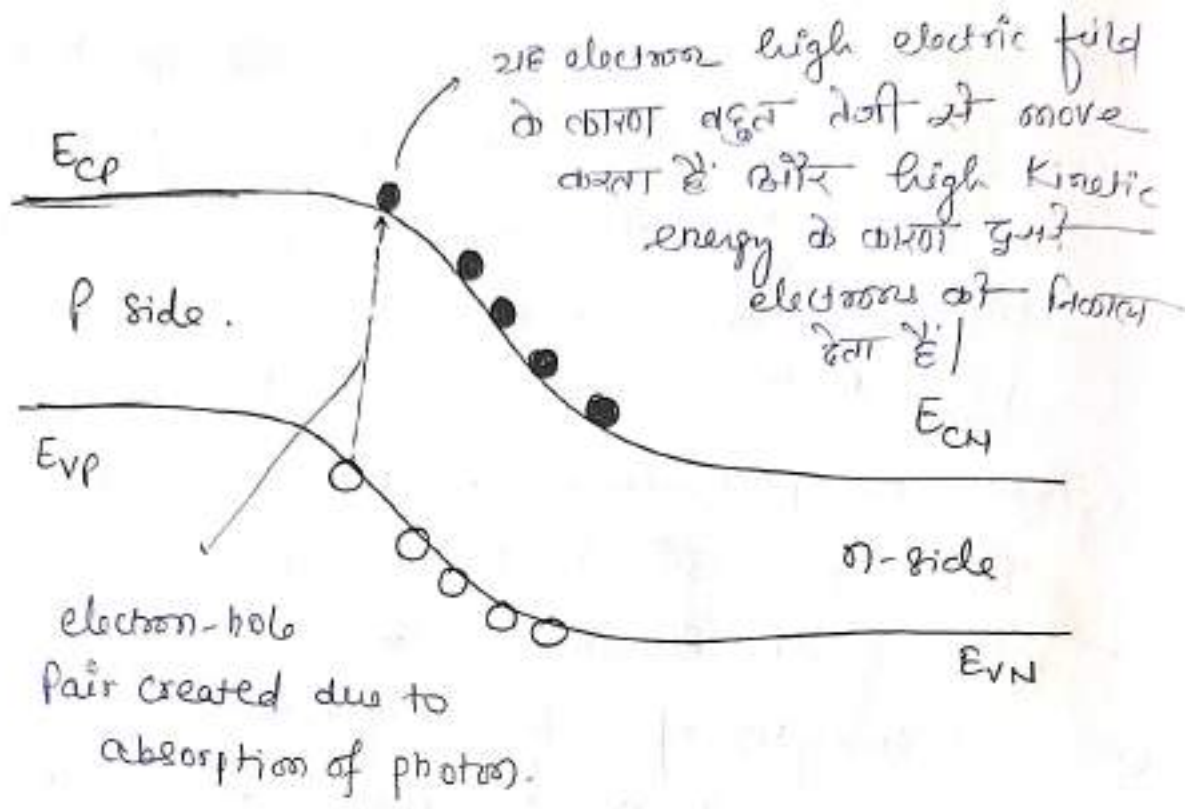 यह electron high electric field
के कारण बहुत तेजी से move
करता हैं और high Kinetic
energy के कारण दुसरे
electrons को निकाल
देता हैं|
E_CP
P side.
E_CN
E_VP
n-side
E_VN
electron-hole
Pair created due to
absorption of photon.